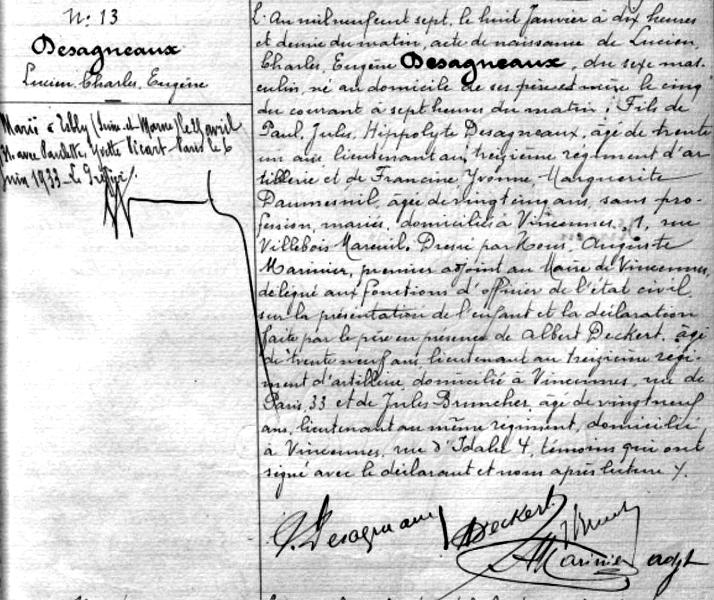 N: 13
Desagneaux
Lucien, Charles, Eugène
Marié à (Seine-et-Marne) le avril
avec Paulette, Yvette Vicart. Paris le 6
Juin 1933. Le Greffier.
L'An mil neuf cent sept, le huit Janvier à dix heures
et demie du matin, acte de naissance de Lucien,
Charles, Eugène Desagneaux, du sexe mas-
culin, né au domicile de ses père et mère le cinq
du courant à sept heures du matin; Fils de
Paul, Jules, Hippolyte Desagneaux, âgé de trente
un ans lieutenant au treizième régiment d'ar-
tillerie et de Francine, Yvonne, Marguerite
Daumesnil, âgée de vingt cinq ans, sans pro-
fession, mariés, domiciliés à Vincennes, 1, rue
Villebois Mareuil. Dressé par Nous, Auguste
Marinier, premier adjoint au Maire de Vincennes,
délégué aux fonctions d'officier de l'état civil,
sur la présentation de l'enfant et la déclaration
faite par le père en présence de Albert Deckert, âgé
de trente neuf ans, lieutenant au treizième régi-
ment d'artillerie, domicilié à Vincennes, rue de
Paris, 33 et de Jules Bruncher, âgé de vingt neuf
ans, lieutenant au même régiment, domicilié
à Vincennes, rue d'Idalie 4, témoins qui ont
signé avec le déclarant et nous après lecture /.
P. Desagneaux Deckert
AMarinier adjt